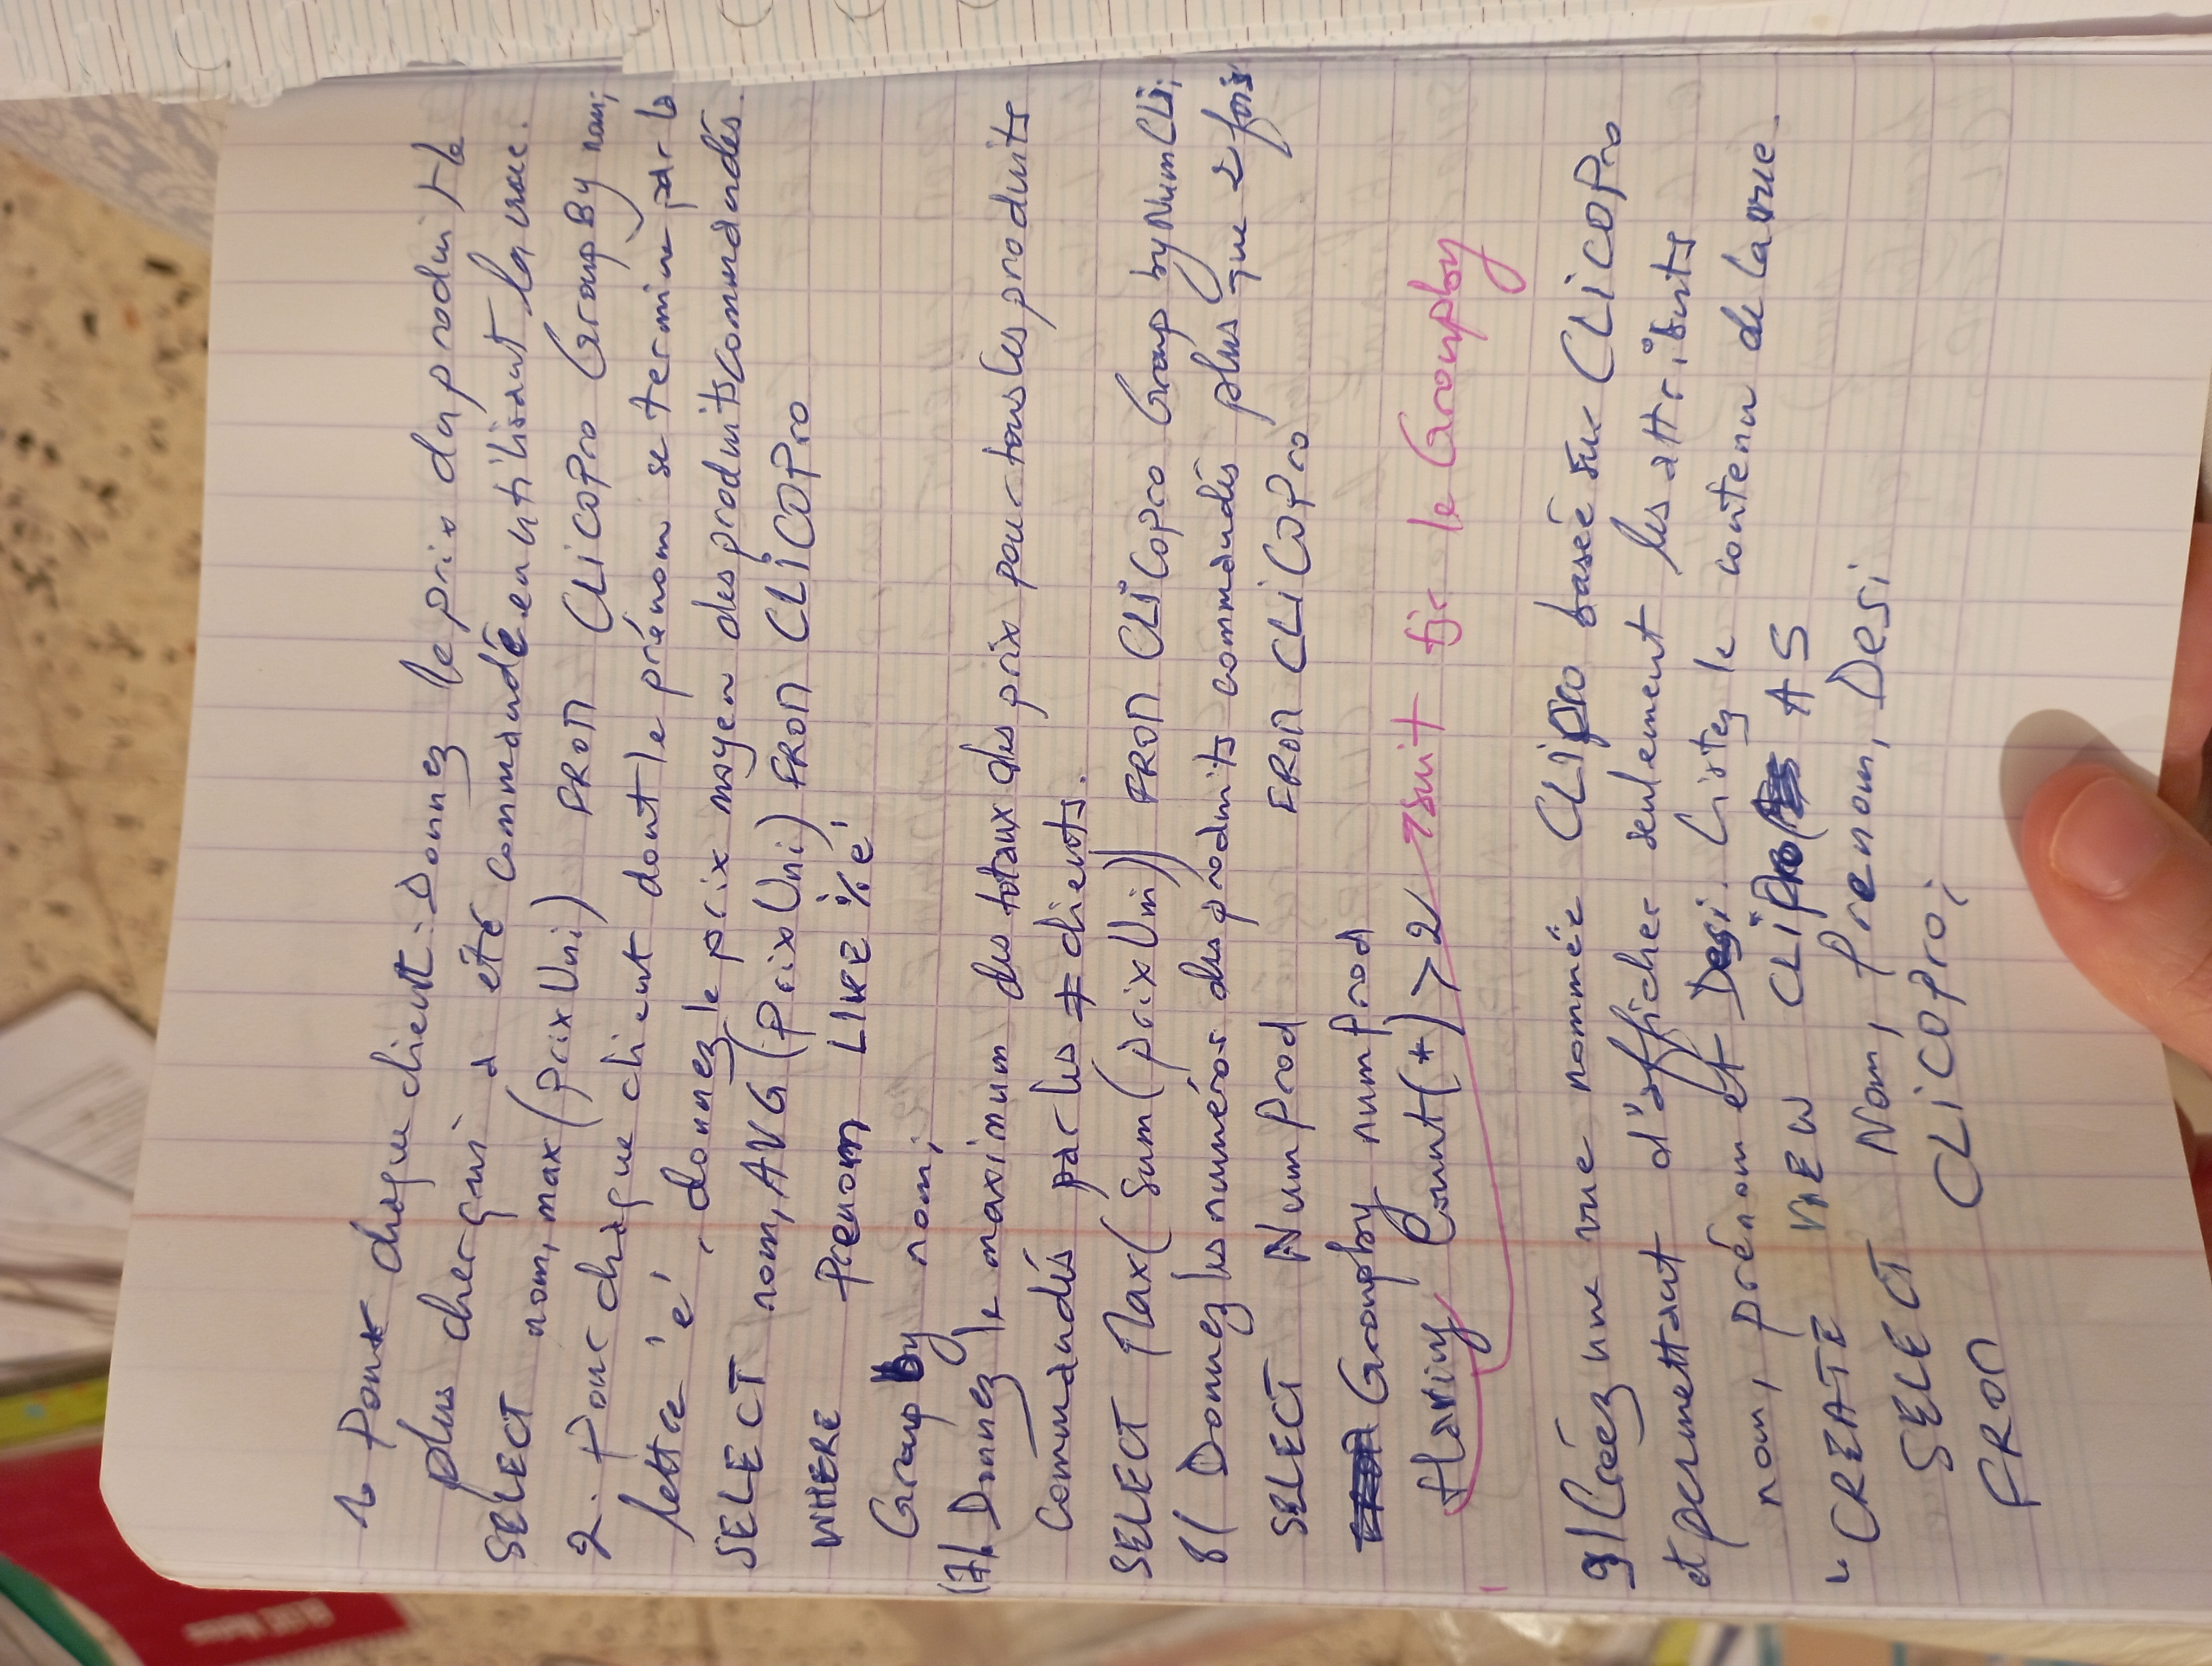 1. Pour chaque client. Donnez le prix du produit le
plus cher qui a été commandé en utilisant la vue.
SELECT nom, max(PrixUni) FROM CLiCOPro Group By nom;
2. Pour chaque client dont le prénom se termine par la
lettre 'e', donnez le prix moyen des produits commandés.
SELECT nom, AVG(PrixUni) FROM CLiCOPro
WHERE Prenom LIKE '%e'
Group by nom;
(7) Donnez le maximum des totaux des prix pour tous les produits
commandés par les ≠ clients.
SELECT Max(Sum(prixUni)) FROM CLiCopro Group by NumCli;
8/ Donnez les numéros des produits commandés plus que 2 fois
SELECT NumProd FROM CLiCOPro
Groupby numProd
Having Count(*) > 2; → suit tjr le Groupby
9/ Créez une vue nommée CLiPro basée sur CLiCOPro
et permettant d'afficher seulement les attributs
nom, prénom et Desi. Listez le contenu de la vue.
CREATE VIEW CLiPro AS
SELECT Nom, Prenom, Desi
FROM CLiCOPro;
BLOC Notes